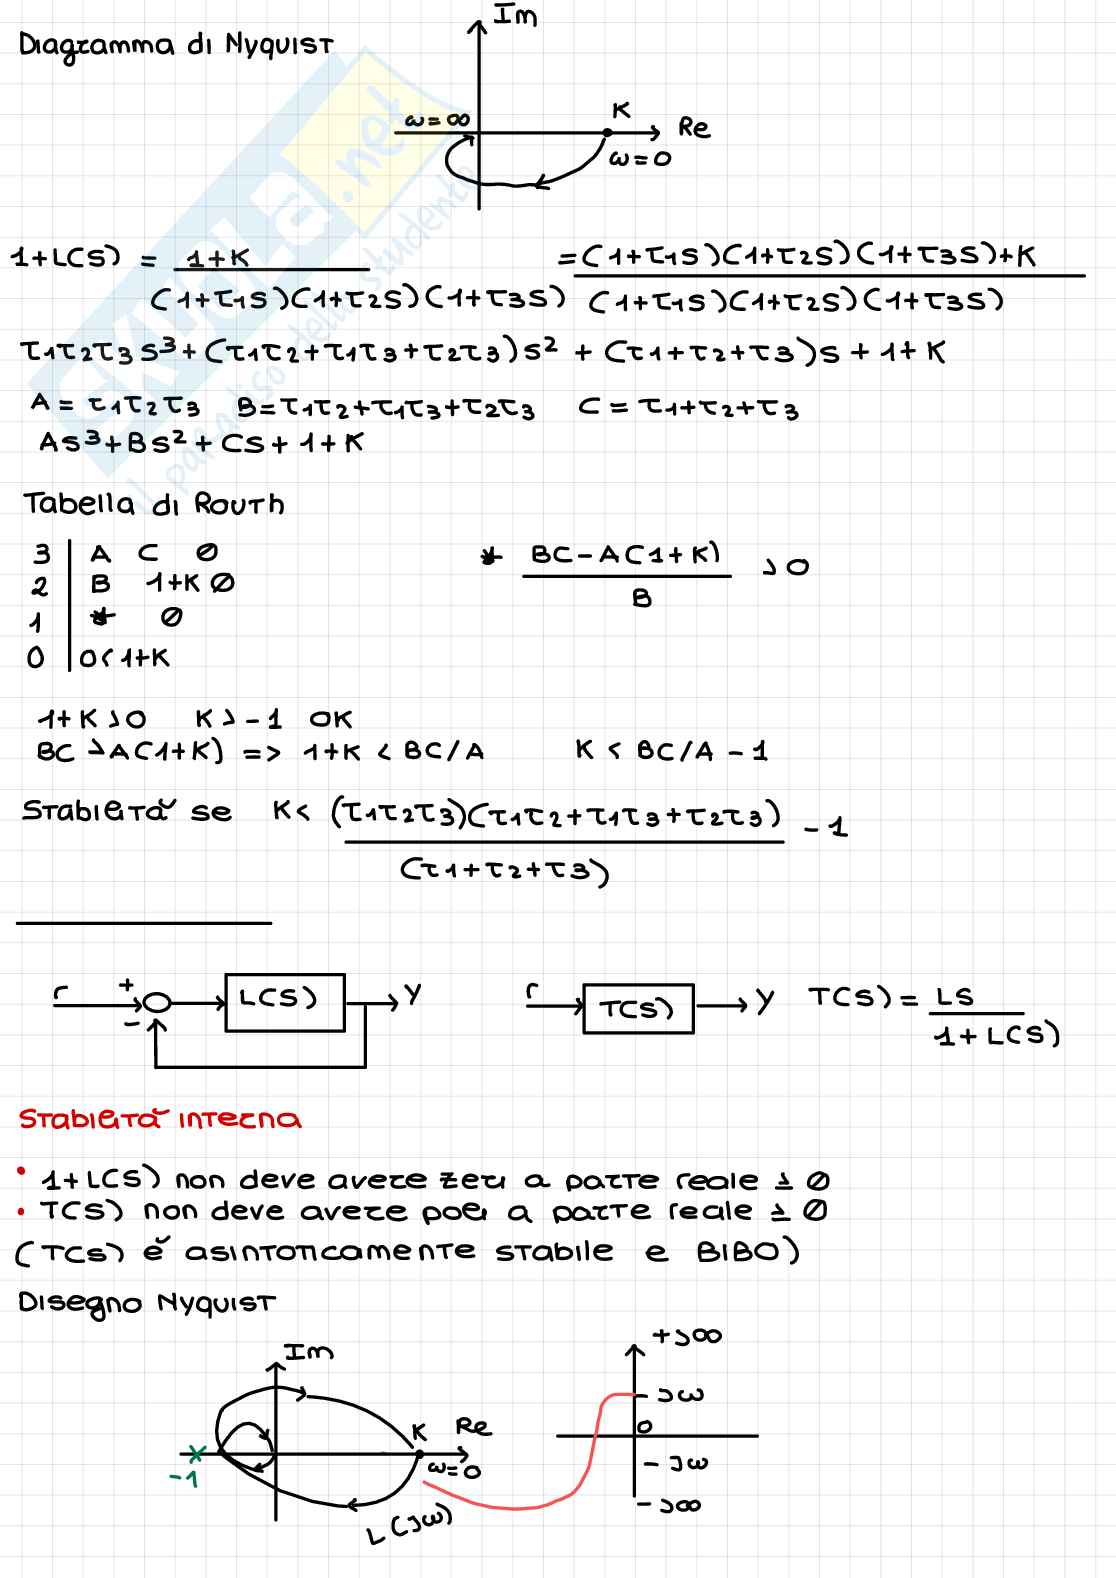 Diagramma di Nyquist
Im
ω=∞
K
Re
ω=0
1+L(S) = 1+K / (1+τ1S)(1+τ2S)(1+τ3S) = (1+τ1S)(1+τ2S)(1+τ3S)+K / (1+τ1S)(1+τ2S)(1+τ3S)
τ1τ2τ3 S³+(τ1τ2+τ1τ3+τ2τ3)S² + (τ1+τ2+τ3)S + 1+K
A = τ1τ2τ3 B=τ1τ2+τ1τ3+τ2τ3 C = τ1+τ2+τ3
AS³+BS²+CS+1+K
Tabella di Routh
3 | A C ∅
2 | B 1+K ∅
1 | * ∅
0 | 0<1+K
* BC-A(1+K) / B >0
1+K>0 K>-1 OK
BC >A(1+K) => 1+K < BC/A K < BC/A - 1
Stabilità se K< (τ1τ2τ3)(τ1τ2+τ1τ3+τ2τ3) / (τ1+τ2+τ3) - 1
r + - L(S) y
r T(S) y T(S) = LS / 1+L(S)
Stabilità interna
• 1+L(S) non deve avere zeri a parte reale ≥ ∅
• T(S) non deve avere poli a parte reale ≥ ∅
(T(S) è asintoticamente stabile e BIBO)
Disegno Nyquist
Im
K
Re
ω=0
-1
L(Jω)
+J∞
Jω
0
-Jω
-J∞
SKUOLA.net
il paradiso dello studente